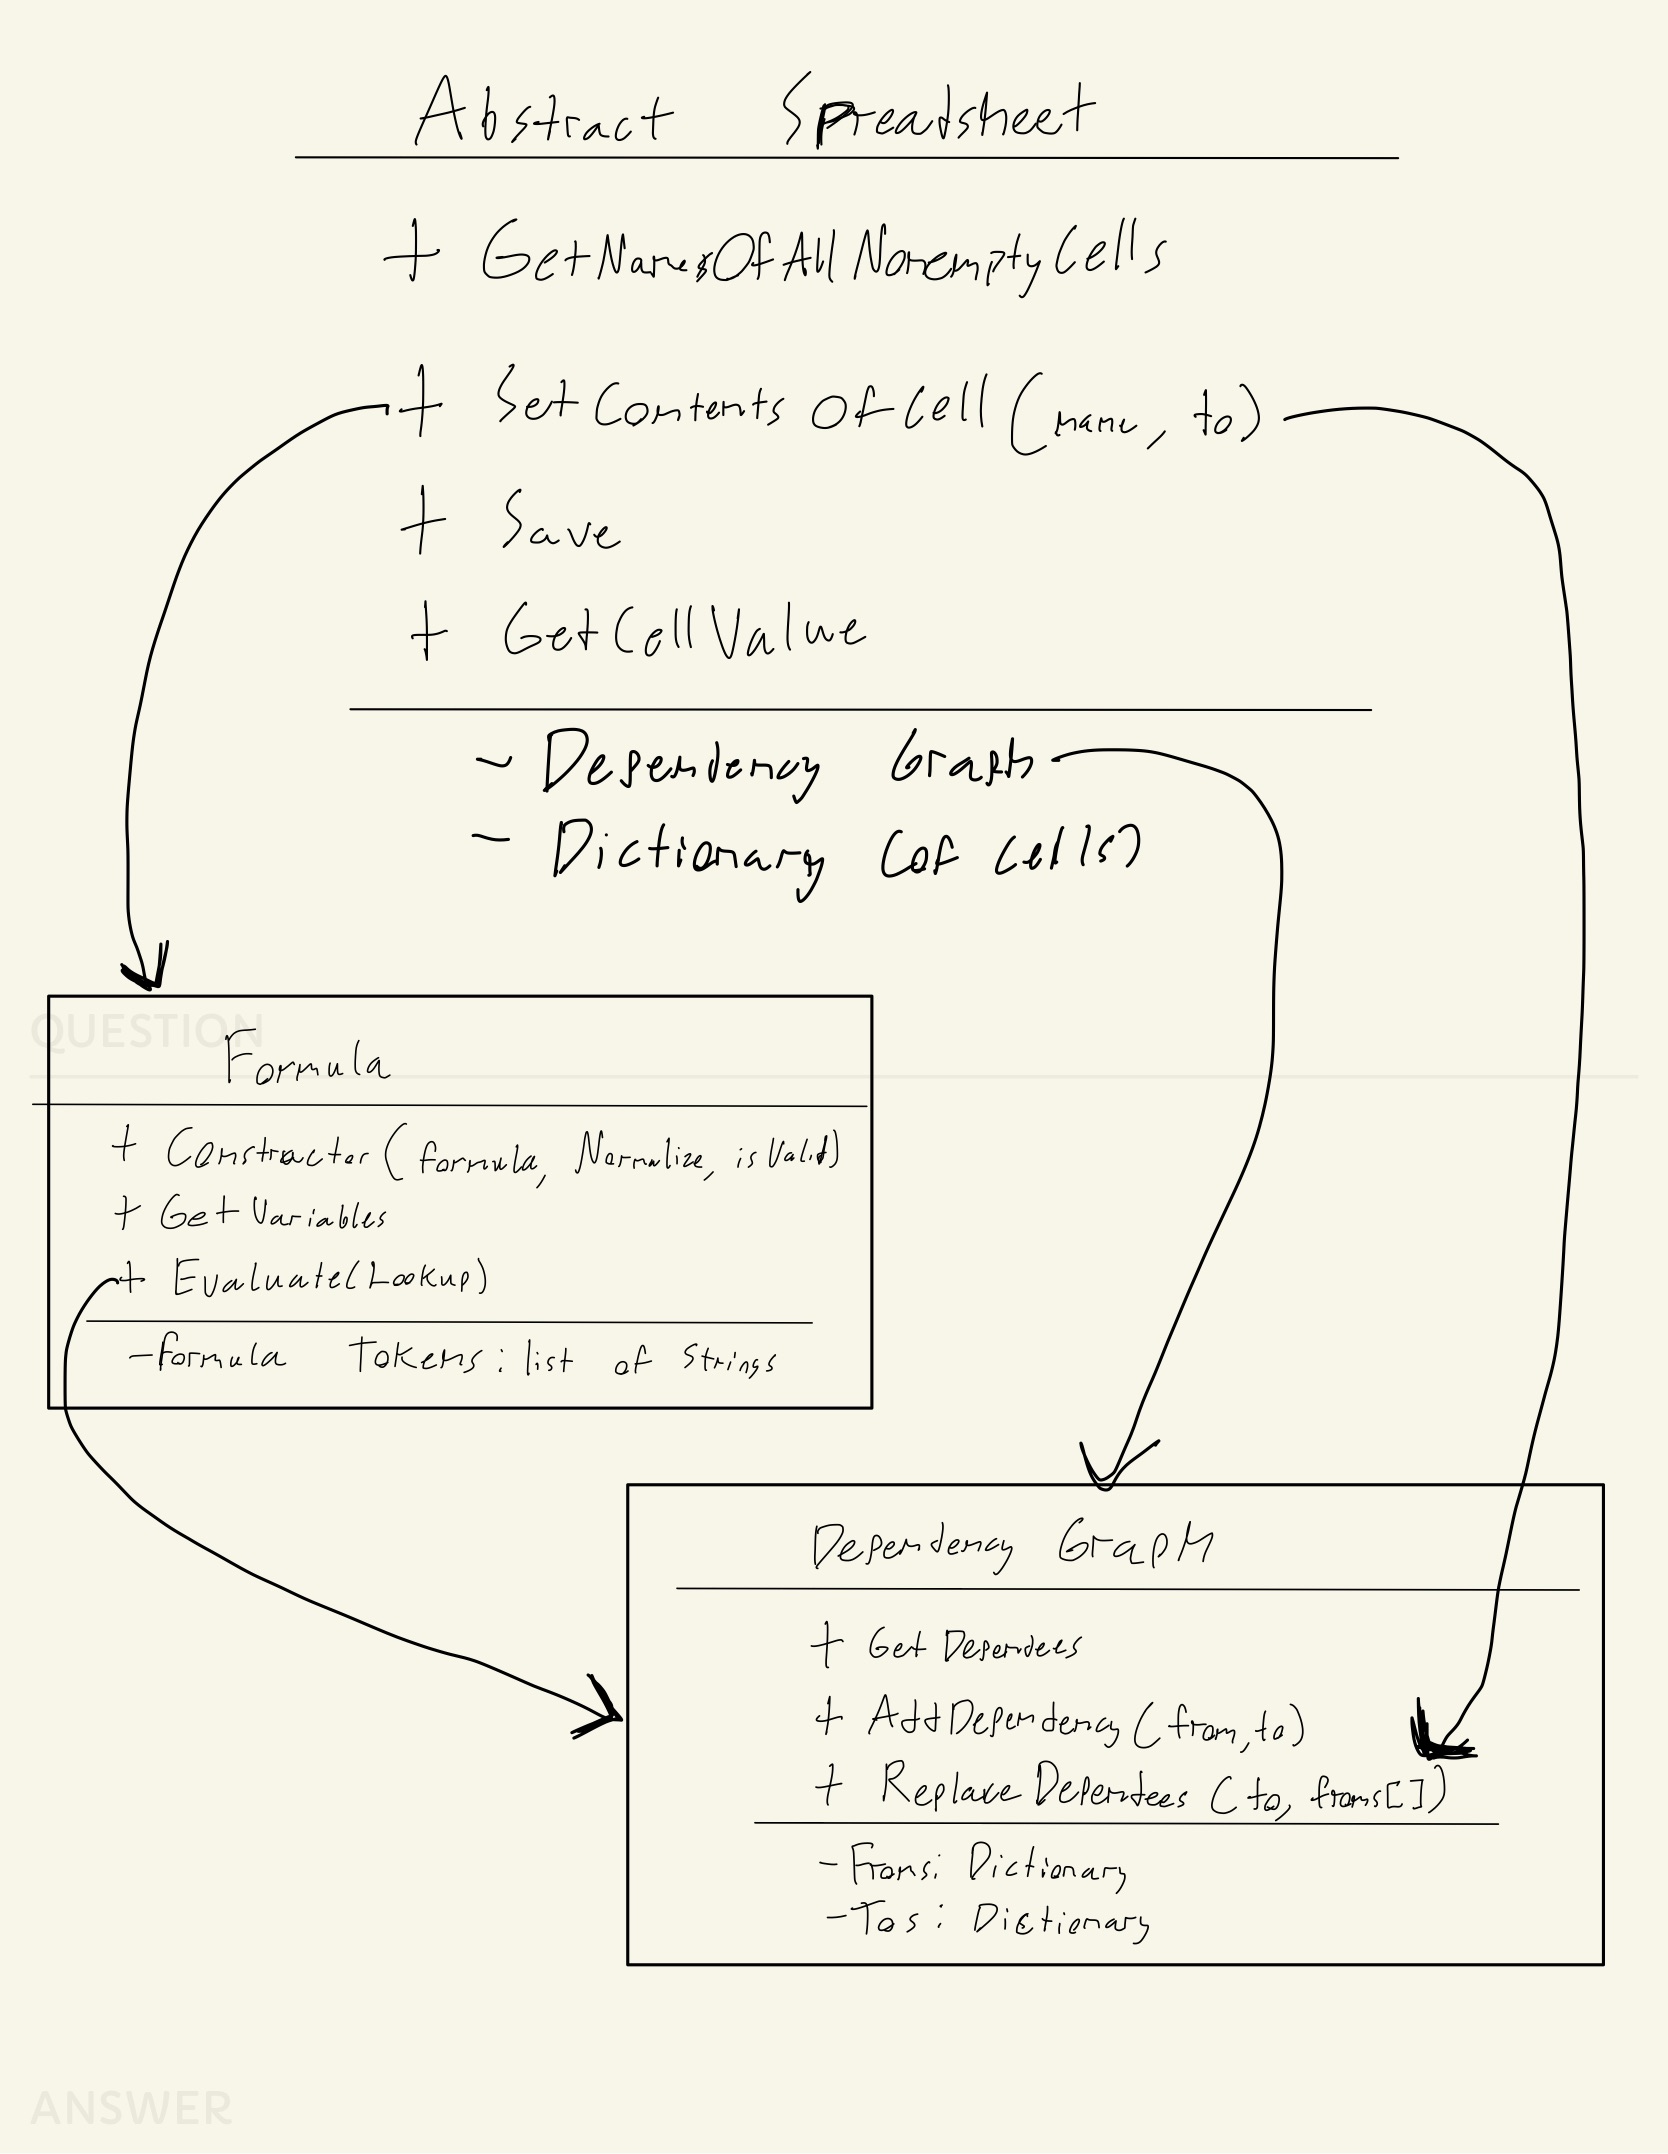 Abstract Spreadsheet
+ GetNamesOfAllNonemptyCells
+ SetContentsOfCell(name, to)
+ Save
+ GetCellValue
- Dependency Graph
- Dictionary (of cells)
QUESTION
Formula
+ Constructor(formula, Normalize, isValid)
+ GetVariables
+ Evaluate(Lookup)
- formula Tokens: list of Strings
Dependency Graph
+ Get Dependees
+ AddDependency(from, to)
+ Replace Dependees (to, froms[])
- Froms: Dictionary
- Tos: Dictionary
ANSWER